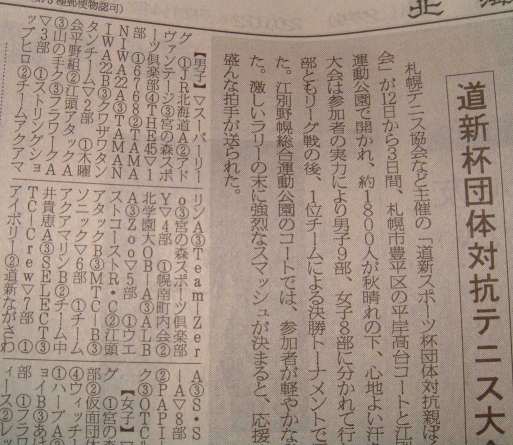 種郵便物認可)
北
道新杯団体対抗テニス大
札幌テニス協会など主催の「道新スポーツ杯団体対抗親ぼ
会」が12日から3日間、札幌市豊平区の平岸高台コートと江
運動公園で開かれ、約1800人が秋晴れの下、心地よい汗
大会は参加者の実力により男子9部、女子8部に分かれて行
部ともリーグ戦の後、1位チームによる決勝トーナメントで
た。江別野幌総合運動公園のコートでは、参加者が軽やかな
た。激しいラリーの末に強烈なスマッシュが決まると、応援
盛んな拍手が送られた。
【男子】▽スーパーリー
グ ①JR北海道A②アド
ヴァンテージ③宮の森スポ
ーツ倶楽部④THE45▽1
部 ①6769②TAMA
NIWA22A③TAMAN
IWA22B③クワザワタン
タンチーム▽2部 ①木曜
会平野組②江頭アタックA
③山の手ク③フラワークA
▽3部 ①ストリングショ
ップヒロ②チームアクアマ
リンA③Team-Zer
o③宮の森スポーツ倶楽部
Y▽4部 ①幌南町内会②
北学園大OB-A③ALB
A③Zoo▽5部 ①ウエ
ストコーストR・C②江頭
アタックB③MTC-B③
ソニック▽6部 ①チーム
アクアマリンB②チーム中
井貴恵A③SELECT③
TC-Crew▽7部 ①
アイボリー②道新ながさわ
A③S・S
-A▽8部
②PAPI
ク③OTC
【女子】▽
グ ①宮の
部②仮面団
④ウィッチ
①ハーブA②
ョイB③あけ
部 ①フラワ
ィース②レッ